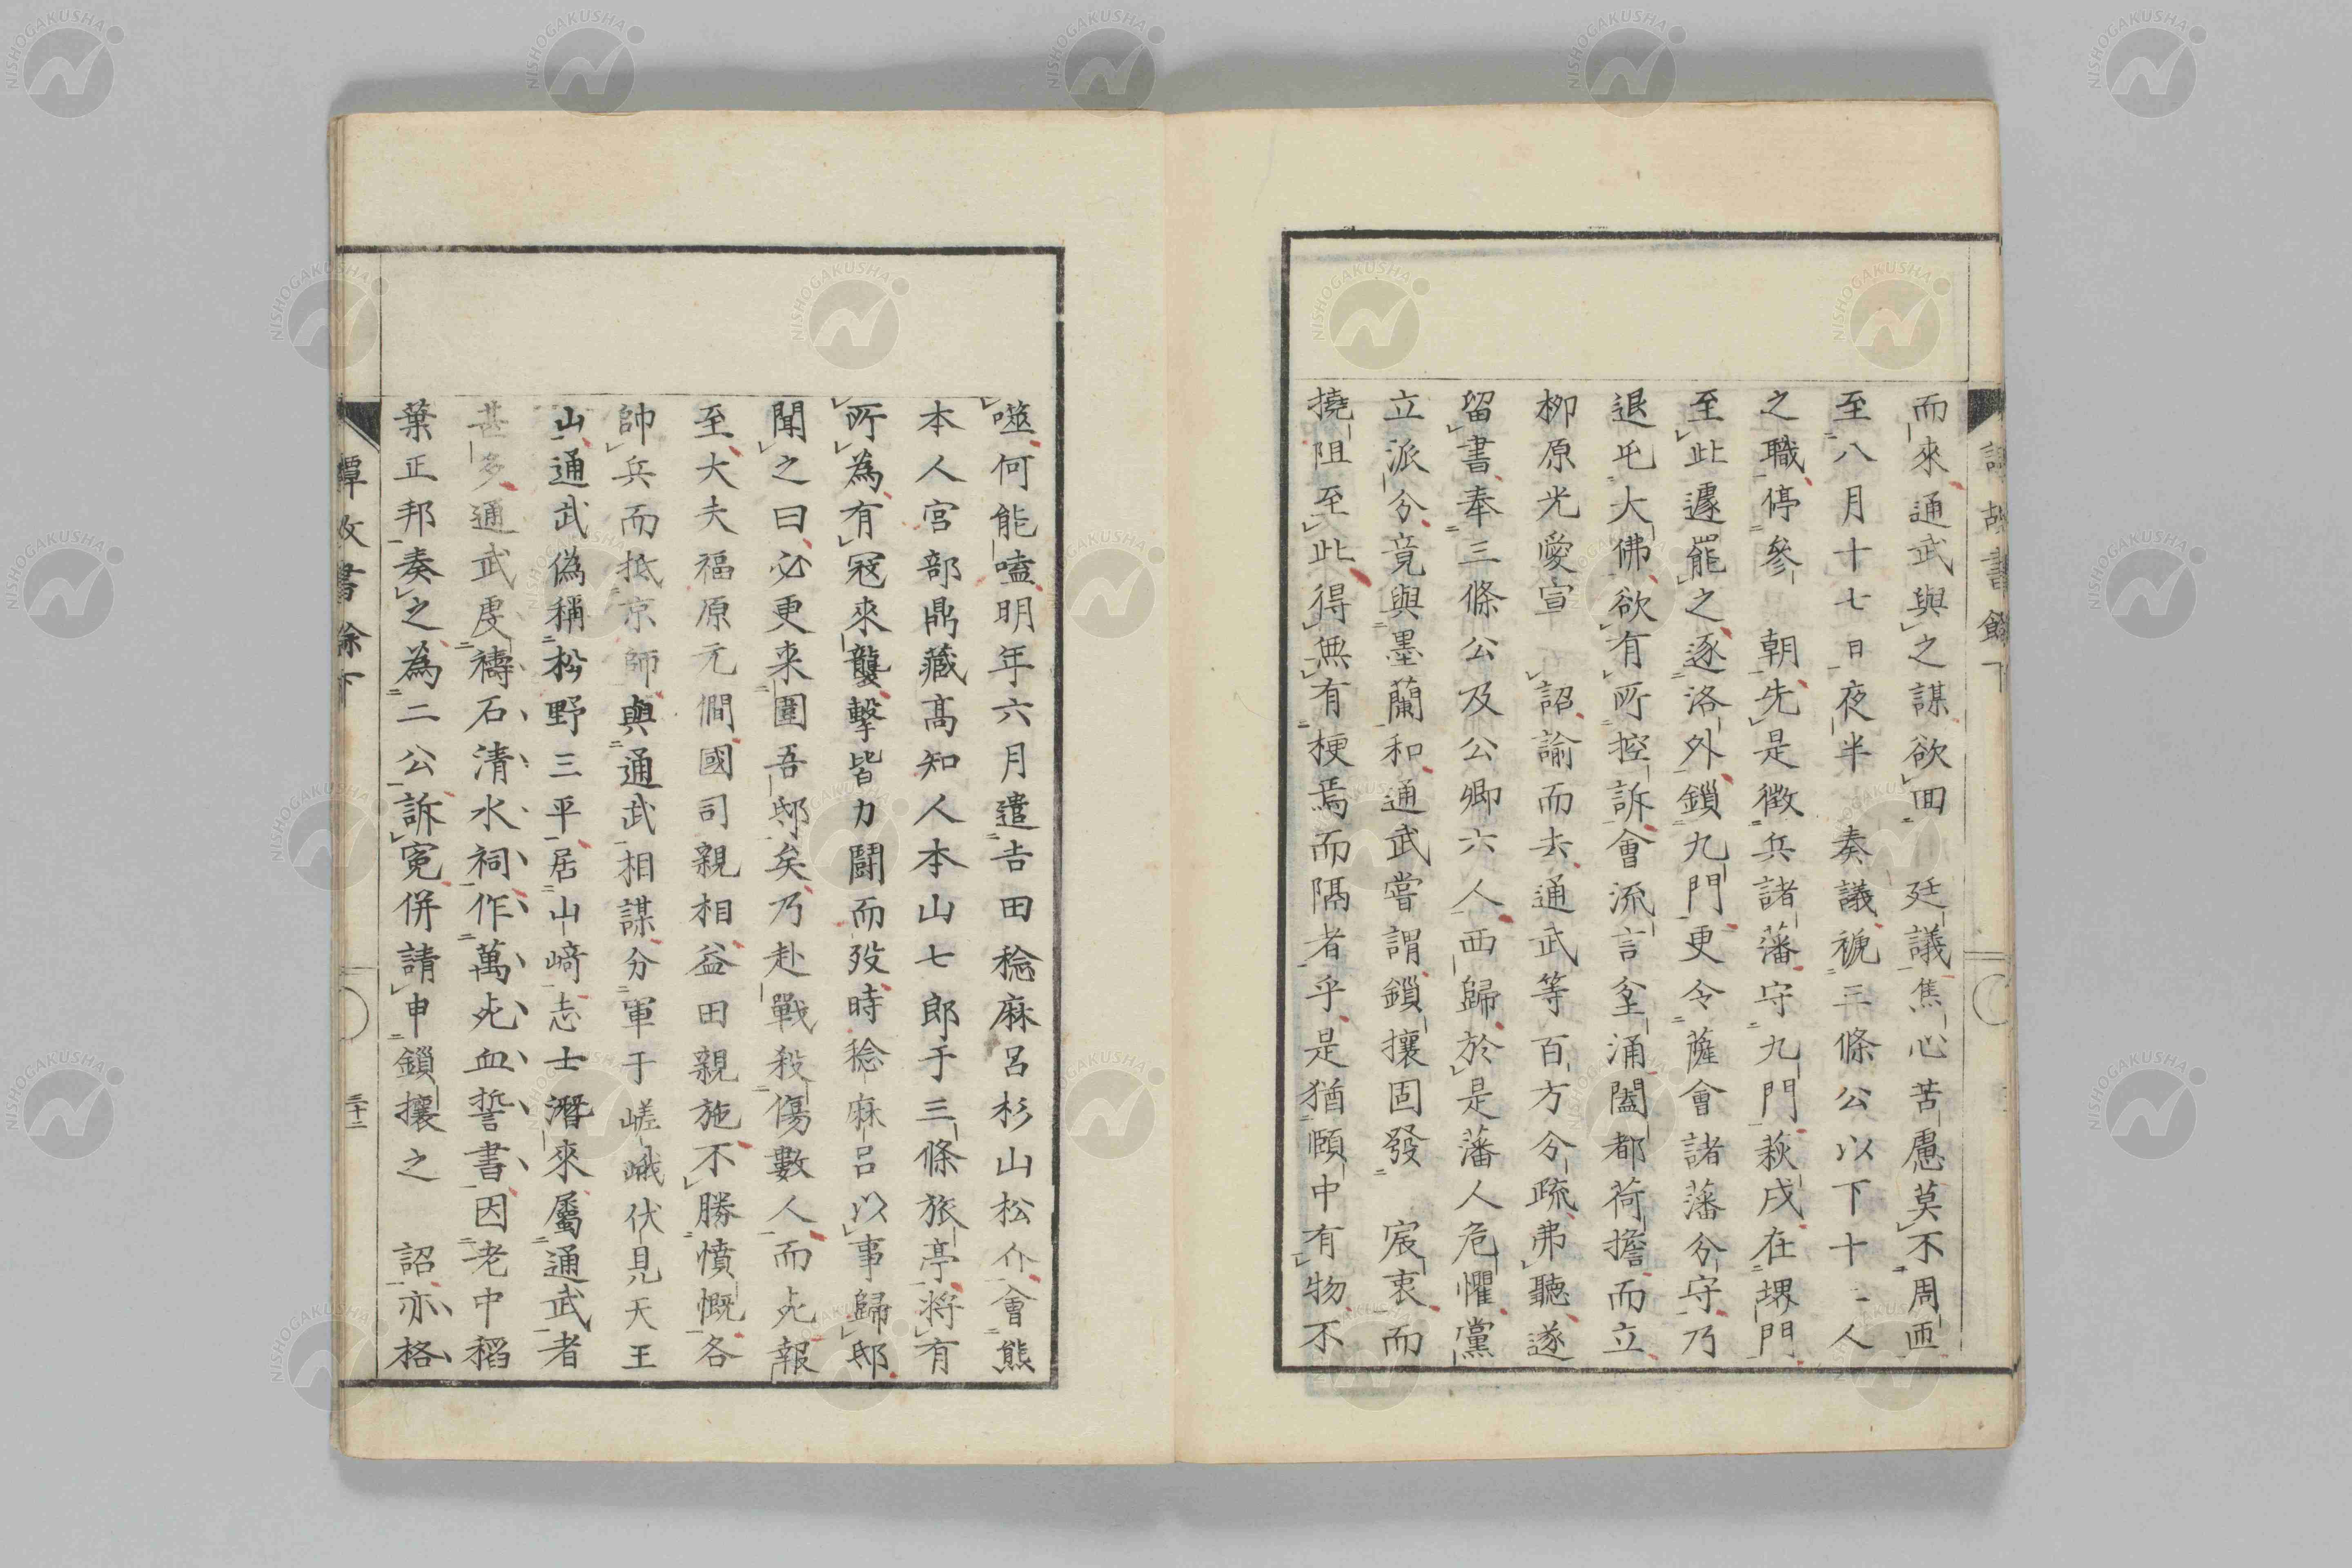 而來通武與之謀欲回　廷議焦心苦慮莫不周匝
至八月十七日夜半　奏議褫三條公以下十二人
之職停參　朝先是徵兵諸藩守九門萩戍在堺門
至此遽罷之逐洛外鎖九門更令薩會諸藩分守乃
退屯大佛欲有所控訴會流言坌涌闔都荷擔而立
柳原光愛宣　詔諭而去通武等百方分疏弗聽遂
留書奉三條公及公卿六人西歸於是藩人危懼黨
立派分竟與墨蘭和通武嘗謂鎖攘固發　宸衷而
撓阻至此得無有梗焉而隔者乎是猶頤中有物不
噬何能嗑明年六月遣吉田稔麻呂杉山松介會熊
本人宮部鼎藏高知人本山七郎于三條旅亭將有
所為有寇來襲擊皆力鬪而歿時稔麻呂以事歸邸
聞之曰必更来圍吾邸矣乃赴戰殺傷數人而死報
至大夫福原元僴國司親相益田親施不勝憤慨各
帥兵而抵京師與通武相謀分軍于嵯峨伏見天王
山通武偽稱松野三平居山﨑志士潛來屬通武者
甚多通武虔禱石清水祠作萬死血誓書因老中稻
葉正邦奏之為二公訴冤併請申鎖攘之　詔亦格
譚故書餘下
三十二